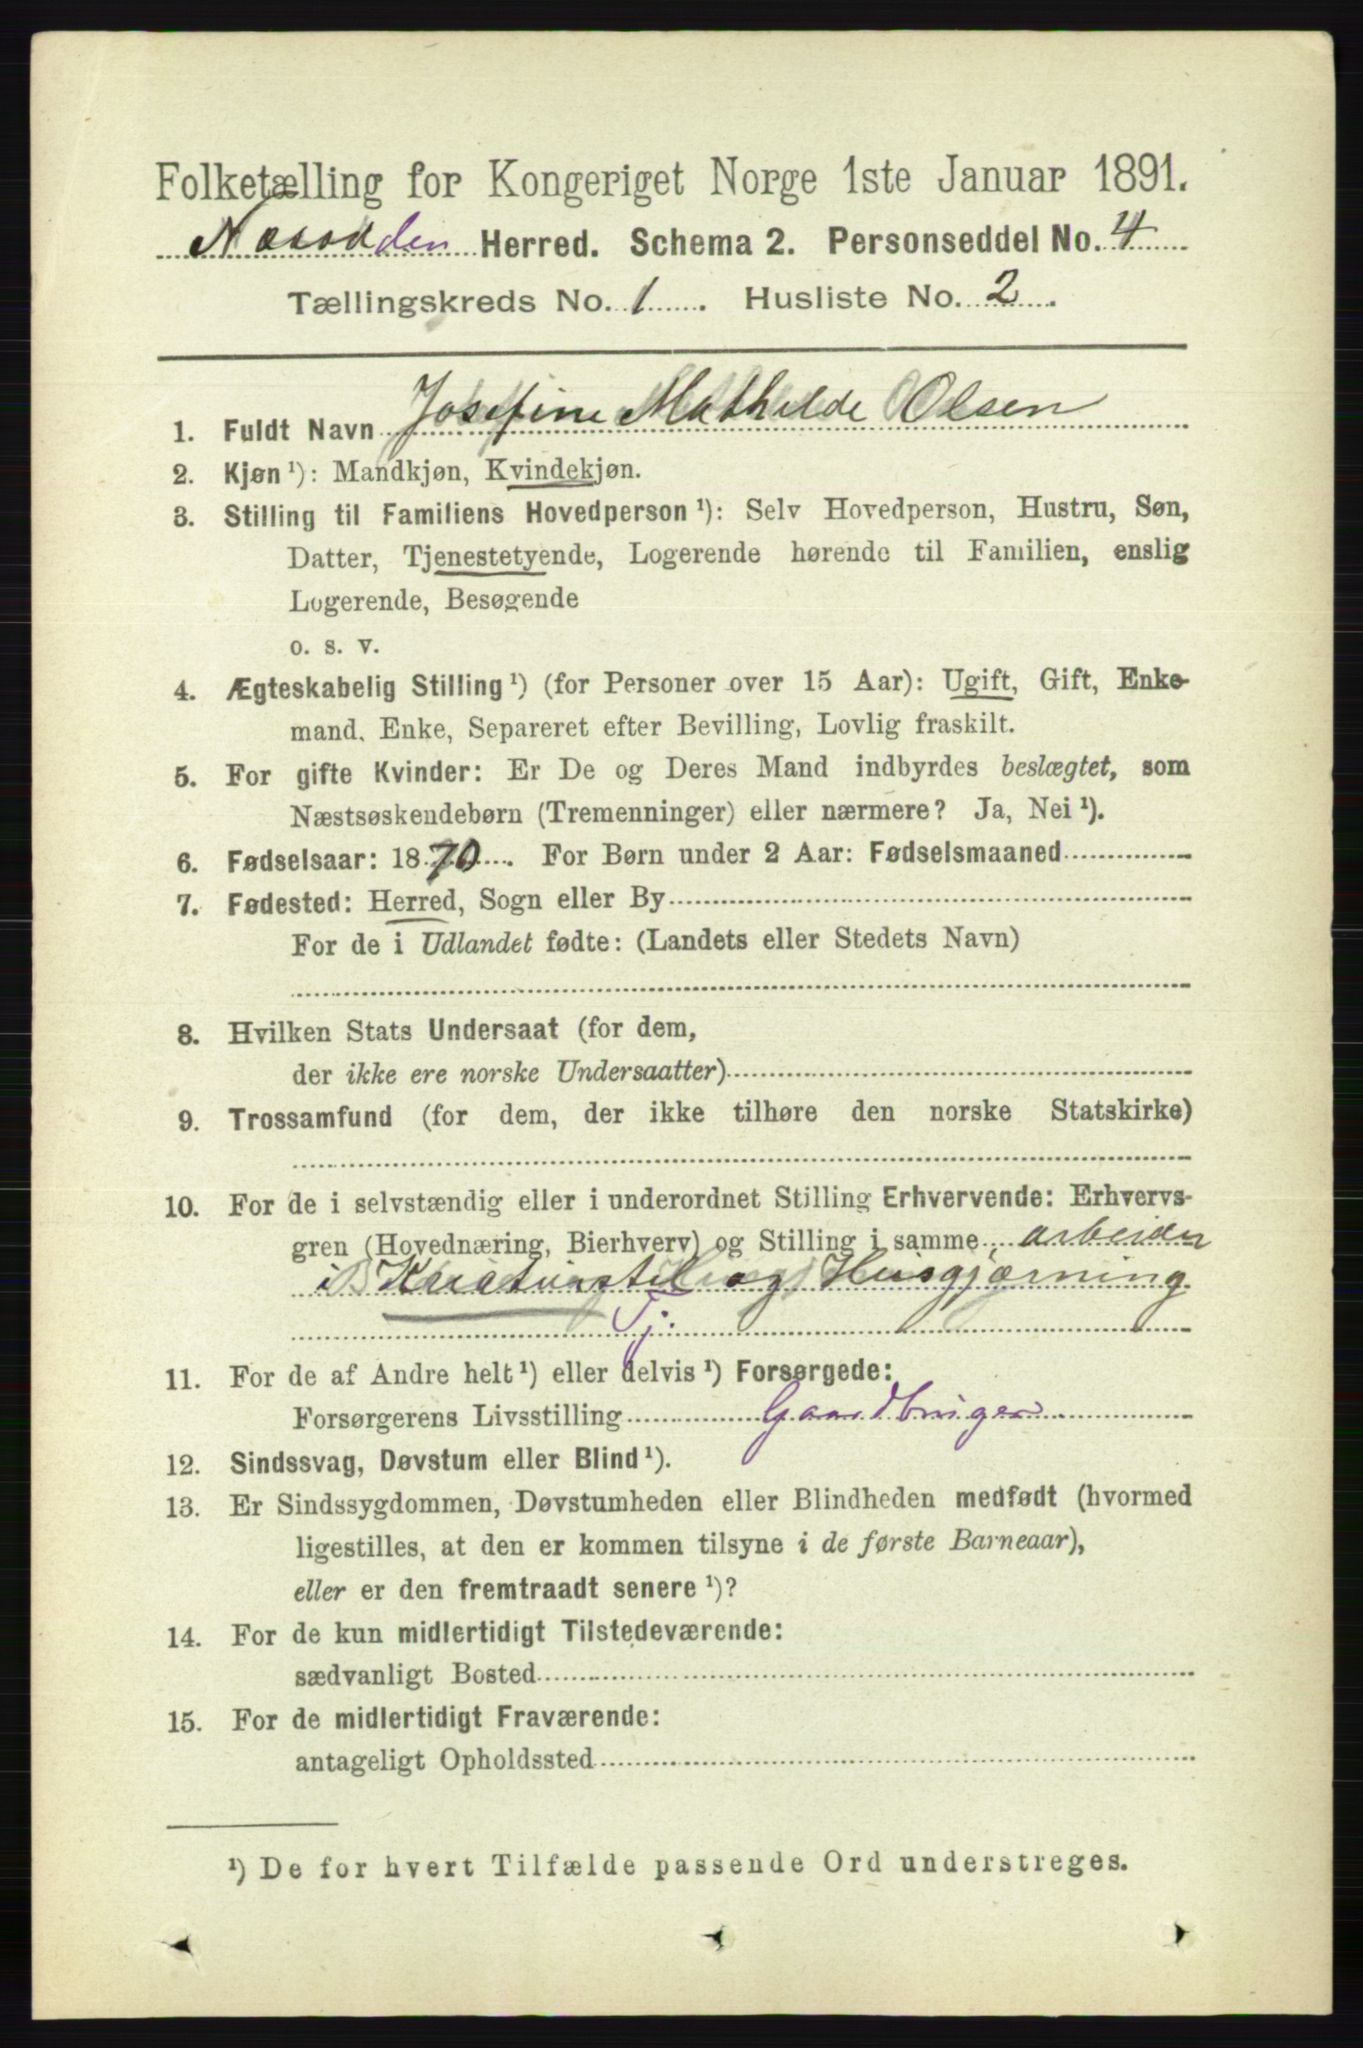 Folketælling for Kongeriget Norge 1ste Januar 1891.
Næsodden Herred. Schema 2. Personseddel No. 4
Tællingskreds No. 1. Husliste No. 2.
1. Fuldt Navn Josefine Mathilde Olsen
2. Kjøn ¹): Mandkjøn, Kvindekjøn.
3. Stilling til Familiens Hovedperson ¹): Selv Hovedperson, Hustru, Søn,
Datter, Tjenestetyende, Logerende hørende til Familien, enslig
Logerende, Besøgende
o. s. v.
4. Ægteskabelig Stilling ¹) (for Personer over 15 Aar): Ugift, Gift, Enke-
mand, Enke, Separeret efter Bevilling, Lovlig fraskilt.
5. For gifte Kvinder: Er De og Deres Mand indbyrdes beslægtet, som
Næstsøskendebørn (Tremenninger) eller nærmere? Ja, Nei ¹).
6. Fødselsaar: 1870. For Børn under 2 Aar: Fødselsmaaned
7. Fødested: Herred, Sogn eller By
For de i Udlandet fødte: (Landets eller Stedets Navn)
8. Hvilken Stats Undersaat (for dem,
der ikke ere norske Undersaatter)
9. Trossamfund (for dem, der ikke tilhøre den norske Statskirke)
10. For de i selvstændig eller i underordnet Stilling Erhvervende: Erhvervs-
gren (Hovednæring, Bierhverv) og Stilling i samme arbeider
i Kreaturstel og Husgjærning
Tj.
11. For de af Andre helt ¹) eller delvis ¹) Forsørgede:
Forsørgerens Livsstilling Gaardbruger
12. Sindssvag, Døvstum eller Blind ¹).
13. Er Sindssygdommen, Døvstumheden eller Blindheden medfødt (hvormed
ligestilles, at den er kommen tilsyne i de første Barneaar),
eller er den fremtraadt senere ¹)?
14. For de kun midlertidigt Tilstedeværende:
sædvanligt Bosted
15. For de midlertidigt Fraværende:
antageligt Opholdssted
¹) De for hvert Tilfælde passende Ord understreges.